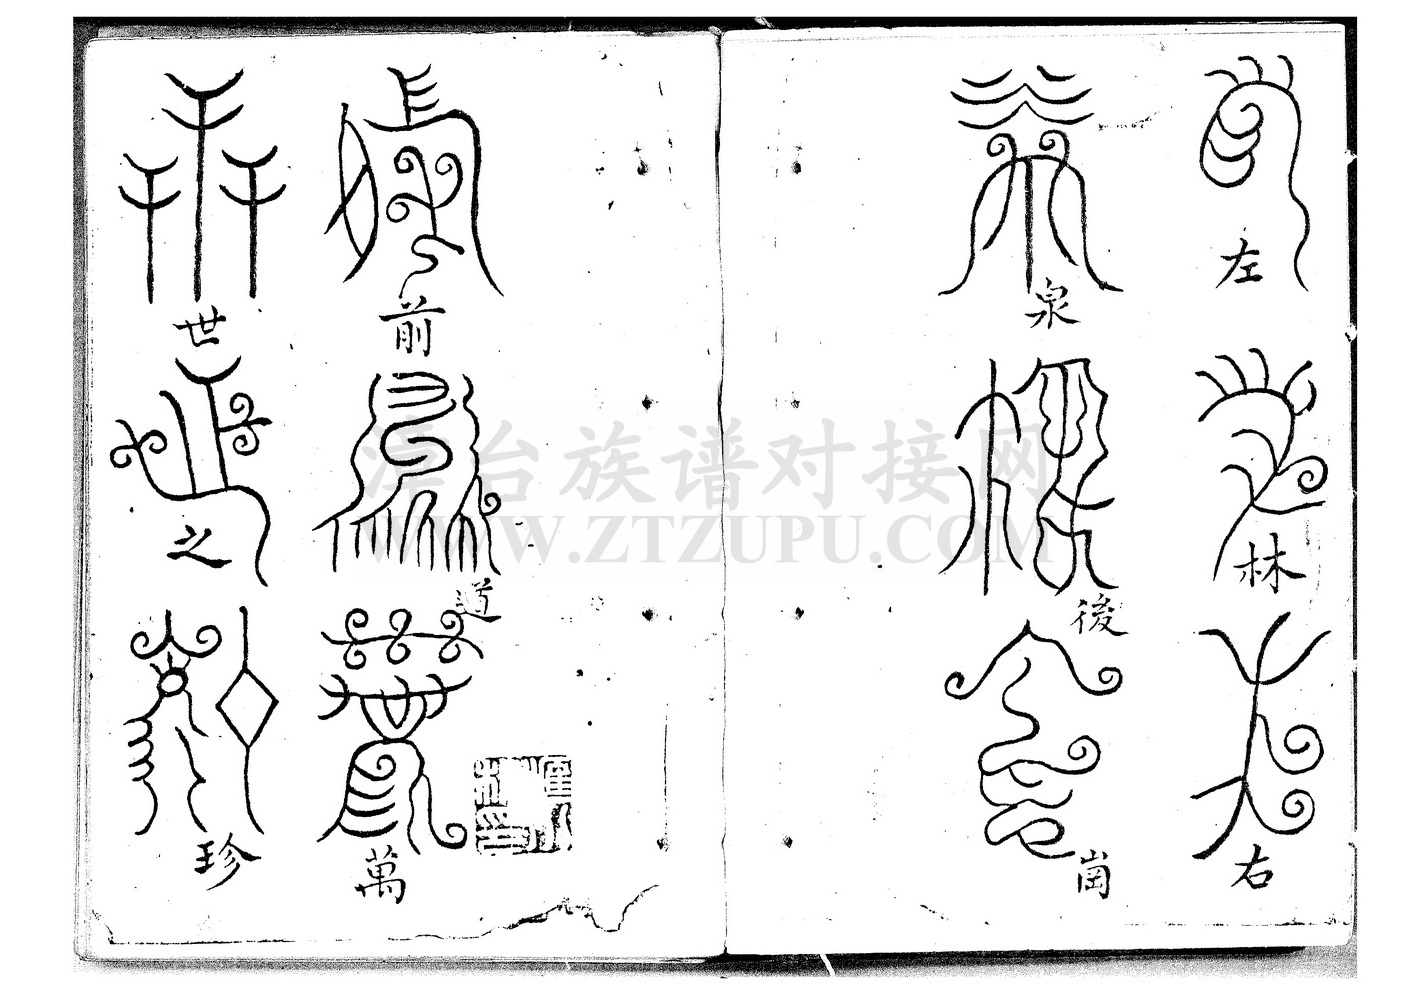 左林右
泉後崗
前道萬
世之珍
漳台族谱对接网
WWW.ZTZUPU.COM